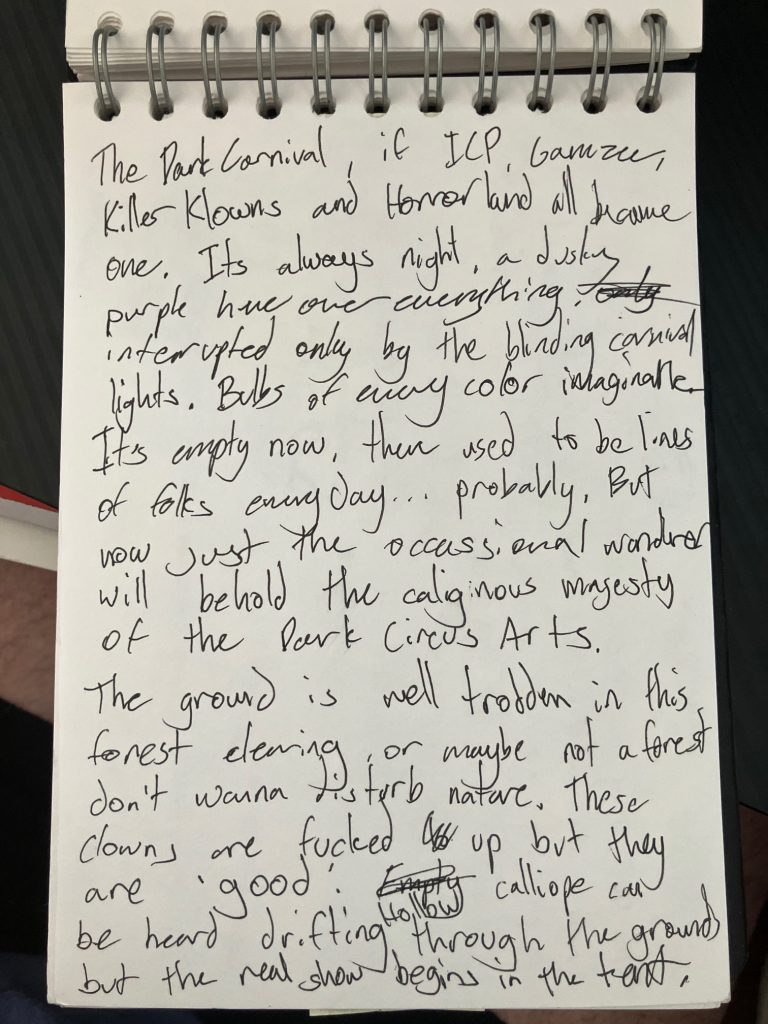 The Dark Carnival, if ICP, Gamzee,
Killer Klowns and Horrorland all became
one. Its always night, a dusky
purple hue over everything, only
interrupted only by the blinding carnival
lights. Bulbs of every color imaginable.
It's empty now, there used to be lines
of folks everyday... probably. But
now just the occassional wonderer
will behold the caliginous majesty
of the Dark Circus Arts.
The ground is well trodden in this
forest clearing, or maybe not a forest
don't wanna disturb nature. These
clowns are fucked up but they
are 'good'. Empty calliope can
Hollow
be heard drifting through the grounds
but the real show begins in the tent.